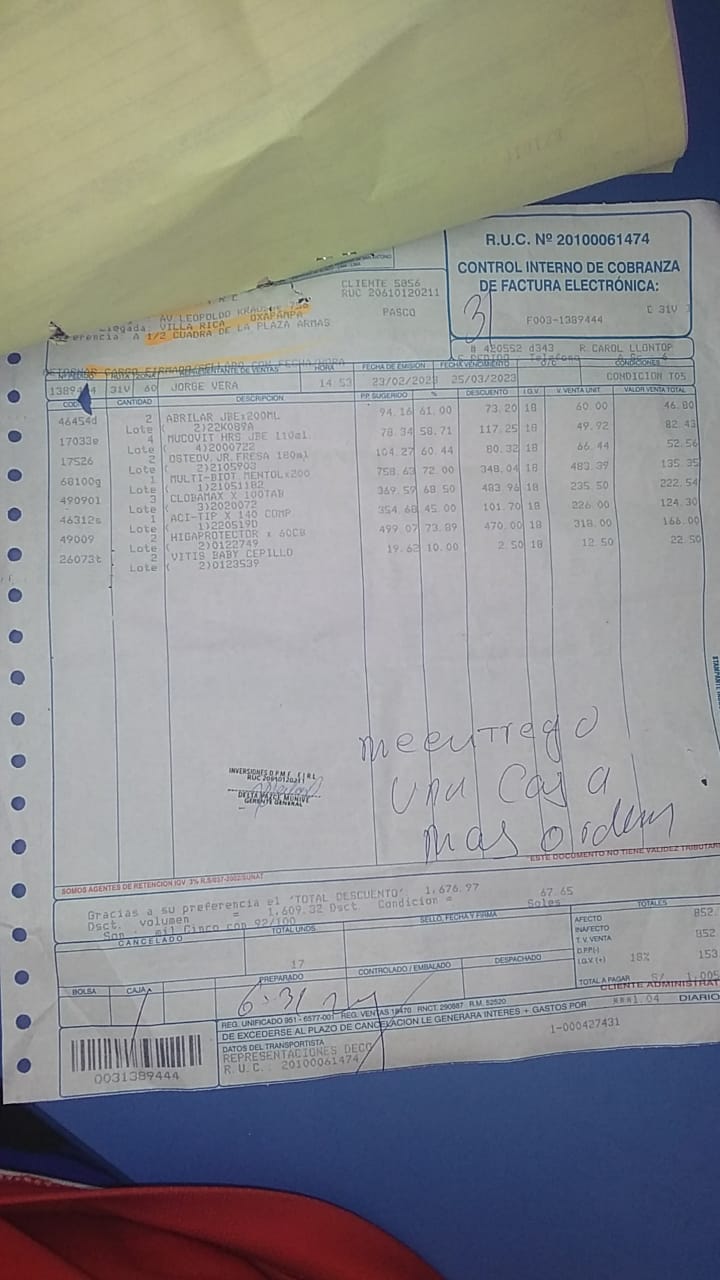 R.U.C. Nº 20100061474
CONTROL INTERNO DE COBRANZA
DE FACTURA ELECTRÓNICA:
F003-1389444
C 31V
3
CLIENTE 5856
RUC 20610120211
PASCO
AV.LEOPOLDO KRAUSE
VILLA RICA OXAPAMPA
A 1/2 CUADRA DE LA PLAZA ARMAS
R.CAROL LLONTOP
RETORNAR CARGO FIRMADO/SELLADO CON FECHA/HORA
REPRESENTANTE DE VENTAS HORA FECHA DE EMISIÓN FECHA VENCIMIENTO O/C CONDICIONES
31V 60 JORGE VERA 14 53 23/02/2023 25/03/2023 CONDICION T05
CANTIDAD DESCRIPCIÓN P.P. SUGERIDO % DESCUENTO I.G.V. V. VENTA UNIT. VALOR VENTA TOTAL
46454d 2 ABRILAR JBEx200ML 94.16 61.00 73.20 18 60.00 46.80
Lote ( 2)22K089A
17033e 4 MUCOVIT HRS JBE 110ml 78.34 58.71 117.25 18 49.92 82.43
Lote ( 4)2000722
17526 2 OSTEDV.JR.FRESA 180ml 104.27 60.44 80.32 18 66.44 52.56
Lote ( 2)2105903
68100g 1 MULTI-BIOT.MENTOLx200 758.63 72.00 348.04 18 483.39 135.35
Lote ( 1)21051182
490901 3 CLOBAMAX X 100TAB 369.59 68.50 483.96 18 235.50 222.54
Lote ( 3)2020072
46312s 1 ACI-TIP X 140 COMP 354.68 45.00 101.70 18 226.00 124.30
Lote ( 1)220519D
49009 2 HIGAPROTECTOR x 60CB 499.07 73.89 470.00 18 318.00 166.00
Lote ( 2)0122749
26073t 2 VITIS BABY CEPILLO 19.62 10.00 2.50 18 12.50 22.50
Lote ( 2)0123539
me entrego
una Caja
mas orden
INVERSIONES D.P.M.E. E.I.R.L.
RUC 20610120211
GERENTE GENERAL
ESTE DOCUMENTO NO TIENE VALIDEZ TRIBUTAR
SOMOS AGENTES DE RETENCION IGV 3% R.S/037-2002/SUNAT
Gracias a su preferencia el 'TOTAL DESCUENTO'. 1,676.97
Dsct. volumen = 1,609.32 Dsct. Condicion = 67.65
Son : mil Cinco con 92/100 Soles
CANCELADO TOTAL UNDS. SELLO, FECHA Y FIRMA TOTALES
17
AFECTO 852.
INAFECTO
T. V. VENTA 852
D.P.P.(-)
I.G.V. (+) 18% 153
TOTAL A PAGAR S/ 1,005
BOLSA CAJA PREPARADO CONTROLADO / EMBALADO DESPACHADO
CLIENTE ADMINISTRAT
REG. UNIFICADO 951 - 6577-001 REG. VENTAS 18470 RNCT. 290887 R.M. 52520
DE EXCEDERSE AL PLAZO DE CANCELACION LE GENERARA INTERES + GASTOS POR
DIARIO
DATOS DEL TRANSPORTISTA
1-000427431
REPRESENTACIONES DECO
R.U.C.: 20100061474
0031389444